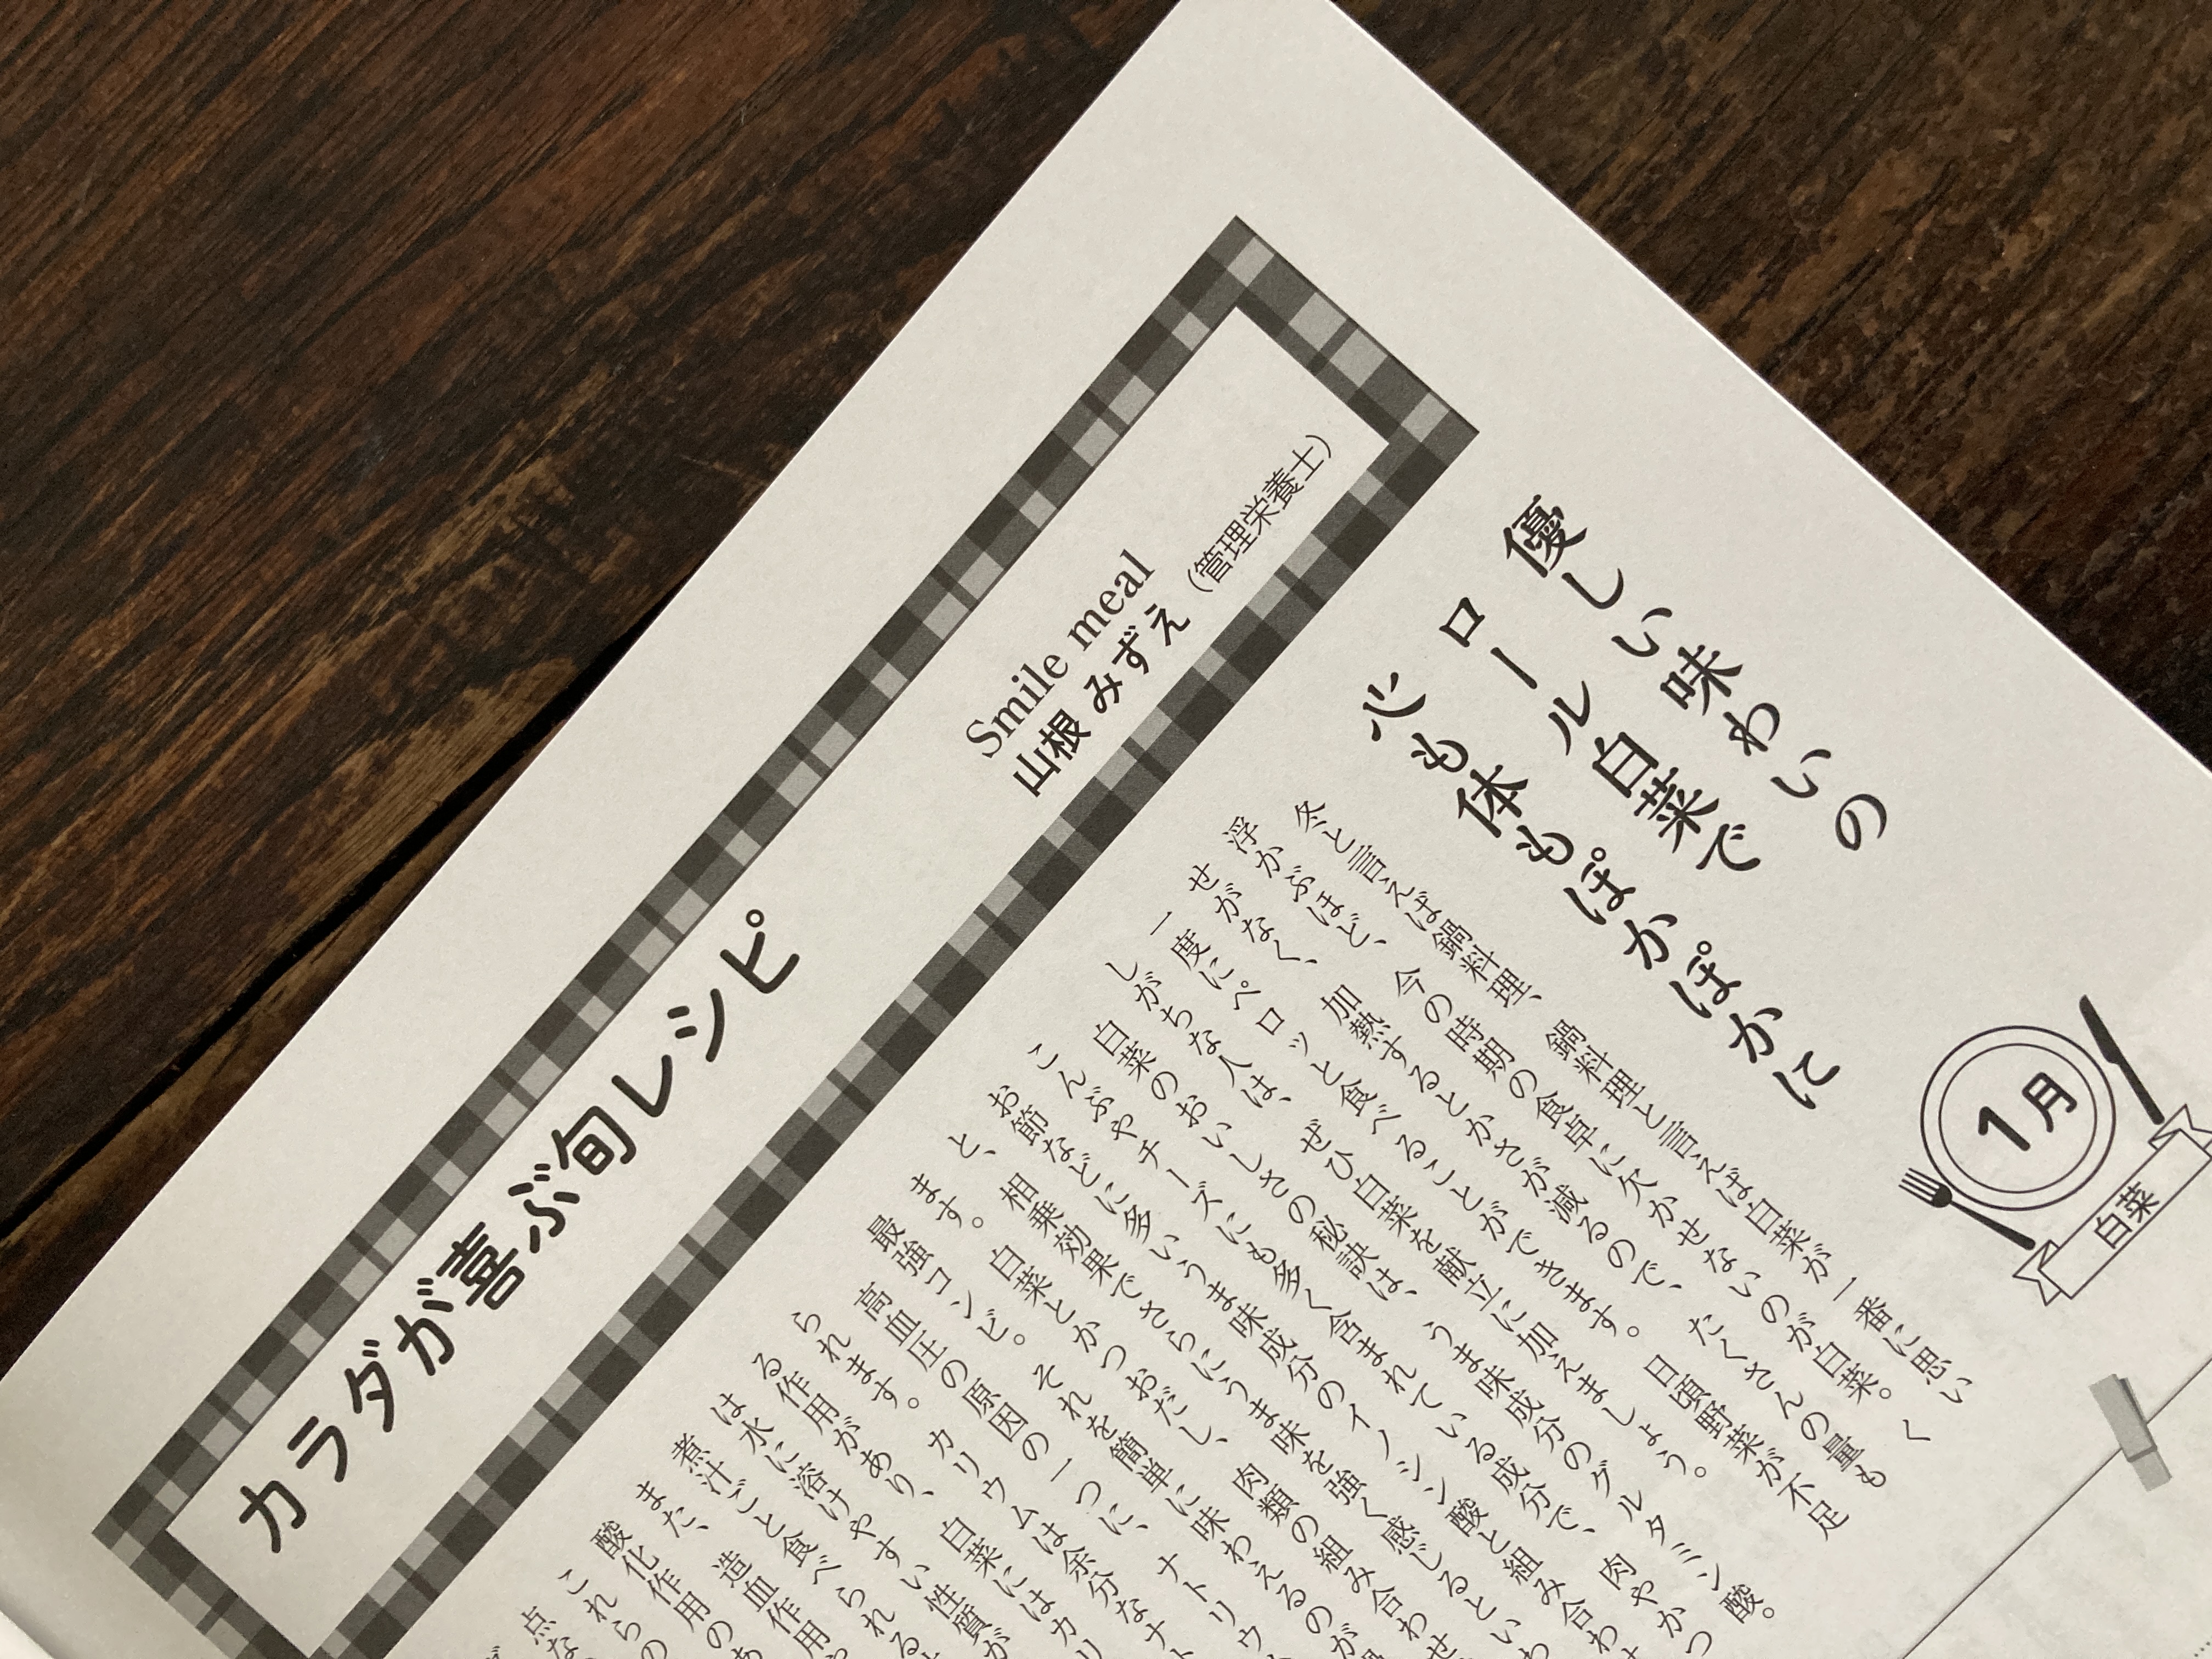 カラダが喜ぶ旬レシピ
Smile meal
山根 みずえ（管理栄養士）
優しい味わいの
ロール白菜で
心も体もぽかぽかに
1月
白菜
冬と言えば鍋料理、鍋料理と言えば白菜が一番に思い
浮かぶほど、今の時期の食卓に欠かせないのが白菜。く
せがなく、加熱するとかさが減るので、たくさんの量も
一度にペロッと食べることができます。日頃野菜が不足
しがちな人は、ぜひ白菜を献立に加えましょう。
白菜のおいしさの秘訣は、うま味成分のグルタミン酸。
こんぶやチーズにも多く含まれている成分で、肉やかつ
お節などに多いうま味成分のイノシン酸と組み合わ
と、相乗効果でさらにうま味を強く感じるといわ
ます。白菜とかつおだし、肉類の組み合わせ
最強コンビ。それを簡単に味わえるのが
高血圧の原因の一つに、ナトリウ
られます。カリウムは余分なナト
る作用があり、白菜にはカリ
は水に溶けやすい性質が
煮汁ごと食べられると
また、造血作用
酸化作用のあ
これらの
点な